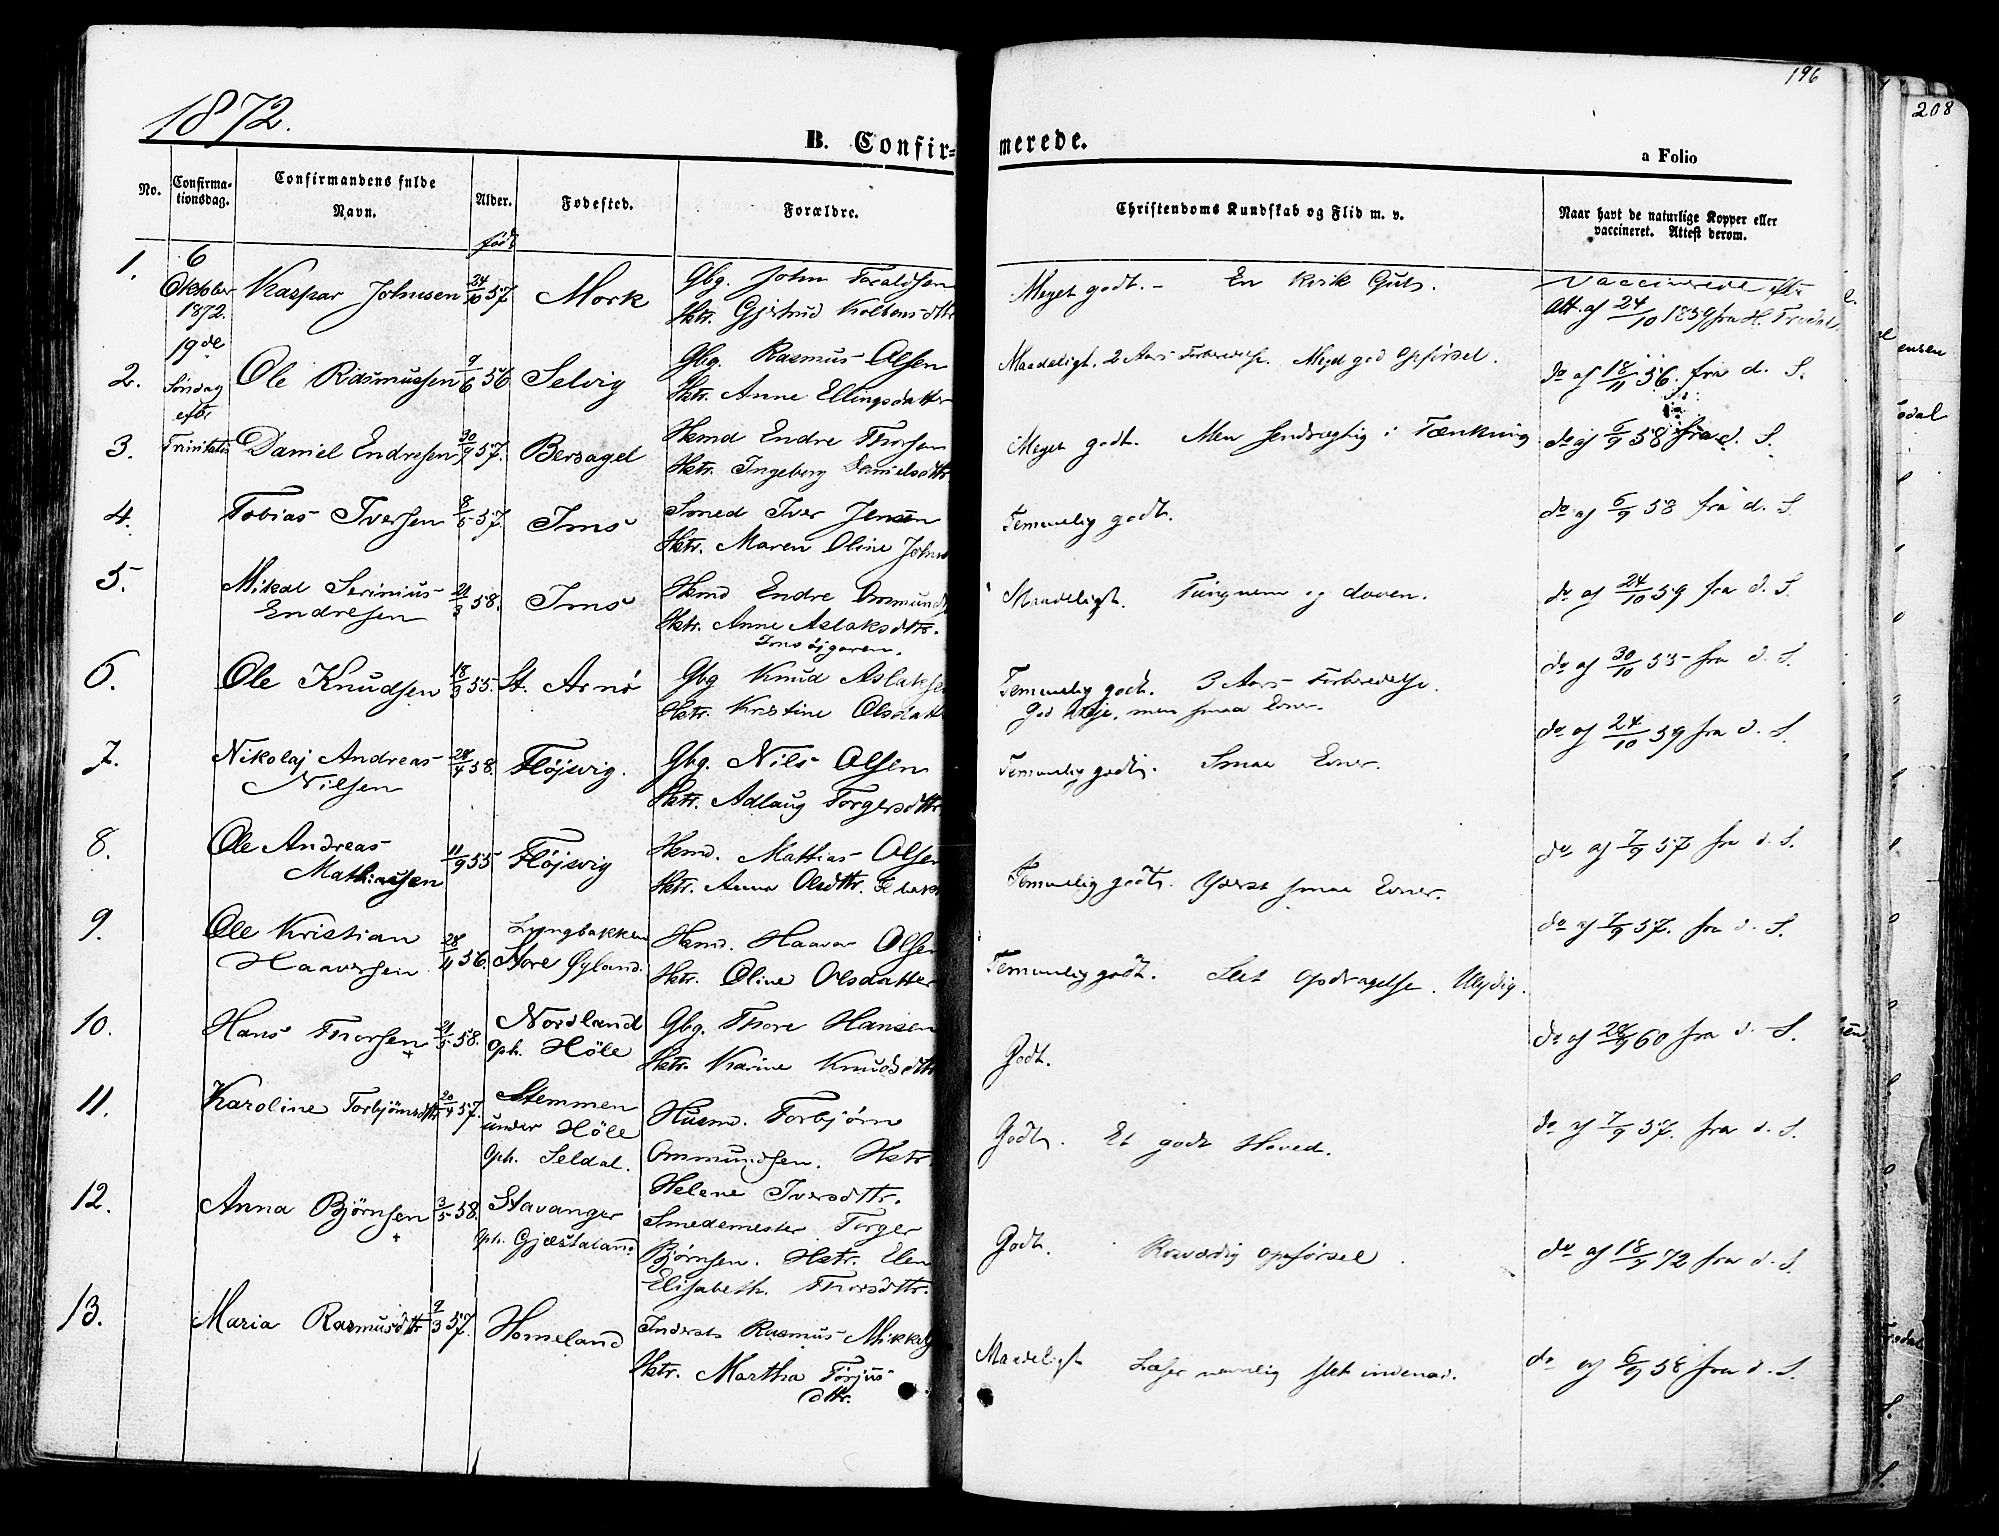 1872.
196
208
B. Confir-
merede.
a Folio
No.
Confirma-
tionsdag.
Confirmandens fulde
Navn.
Alder.
født
Fødested.
Forældre.
Christendoms Kundskab og Flid m. v.
Naar havt de naturlige Kopper eller
vaccineret. Attest derom.
6
Oktober
1872.
19de
Søndag
efter
Trinitatis
1.
Kaspar Johnsen
24/10 57
Mork
Gbg. John Taraldsen
Hstr. Gjertrud Kolbensdttr
Meget godt. - En kvik Gut.
Vaccinerede eftr
Att. af 24/10 1859 fra H. Trodal
2.
Ole Rasmussen
9/6 56
Selvig
Gbg. Rasmus Olsen
Hstr. Anne Ellingsdatter
Maadeligt. 2 Aars Forberedelse. Meget god Opførsel.
do af 18/11 56. fra d. S.
3.
Daniel Endresen
30/9 57.
Bersagel
Hsmd Endre Thorsen
Hstr. Ingeborg Danielsdttr
Meget godt. Men sendrægtig i Tænkning
do af 6/9 58 fra d. S.
4.
Tobias Iversen
8/5 57.
Ims
Smed Iver Jensen
Hstr. Maren Oline Johns
Temmelig godt.
do af 6/9 58 fra d. S
5.
Mikal Serinius
Endresen
21/3 58.
Ims
Hsmd Endre Ommunds
Hstr. Anne Aslaksdttr.
Maadeligt. Tungnem og doven.
do af 24/10 59 fra d. S
6.
Ole Knudsen
18/3 55.
St. Arnø
Gbg Knud Aslaksen
Hstr. Kristine Olsdatt
Temmelig godt. 3 Aars Forberedelse.
God Vilje, men smaa Evner.
do af 30/10 55 fra d. S.
7.
Nikolaj Andreas
Nilsen
28/4 58.
Fløjsvig.
Gbg. Nils Olsen
Hstr. Adlaug Torgersdttr
Temmelig godt. Smaa Evner.
do af 24/10 59 fra d. S
8.
Ole Andreas
Mathiassen
11/9 55
Fløjsvig
Hsmd. Mattias Olsen
Hstr. Anna Olsdttr.
Temmelig godt. Yderst smaa Evner.
do af 7/9 57 fra d. S.
9.
Ole Kristian
Haaversen
28/11 56.
Lyngbakken
Store Øyland.
Hsmd. Haavar Olsen
Hstr. Oline Olsdatter
Temmelig godt. Slet Opdragelse. Ulydig.
do af 7/9 57. fra d. S.
10.
Hans Thorsen
21/5 58.
Nordland
Oph. Høle
Gbg. Thore Hansen
Hstr. Karine Knudsdttr
Godt.
do af 28/9 60 fra d. S.
11.
Karoline Torbjørnsdttr
20/4 57.
Stemmen
under Høle
Oph. Seldal.
Husmd. Torbjørn
Ommundsen. Hstr.
Helene Iversdttr.
Godt. Et godt Hoved.
do af 7/9 57. fra d. S.
12.
Anna Bjørnsen
3/5 58.
Stavanger
Oph. Gjæstaland
Smedemester Torger
Bjørnsen. Hstr. Elen
Elisabeth. Thorsdttr.
Godt. Rosværdig Opførsel.
do af 18/9 72 fra d. S.
13.
Maria Rasmusdttr
9/3 57.
Homeland
Inderst Rasmus Mikkels
Hstr. Martha Torjus
dttr.
Maadeligt Læser nemlig slet indenad.
do af 6/9 58 fra d. S.